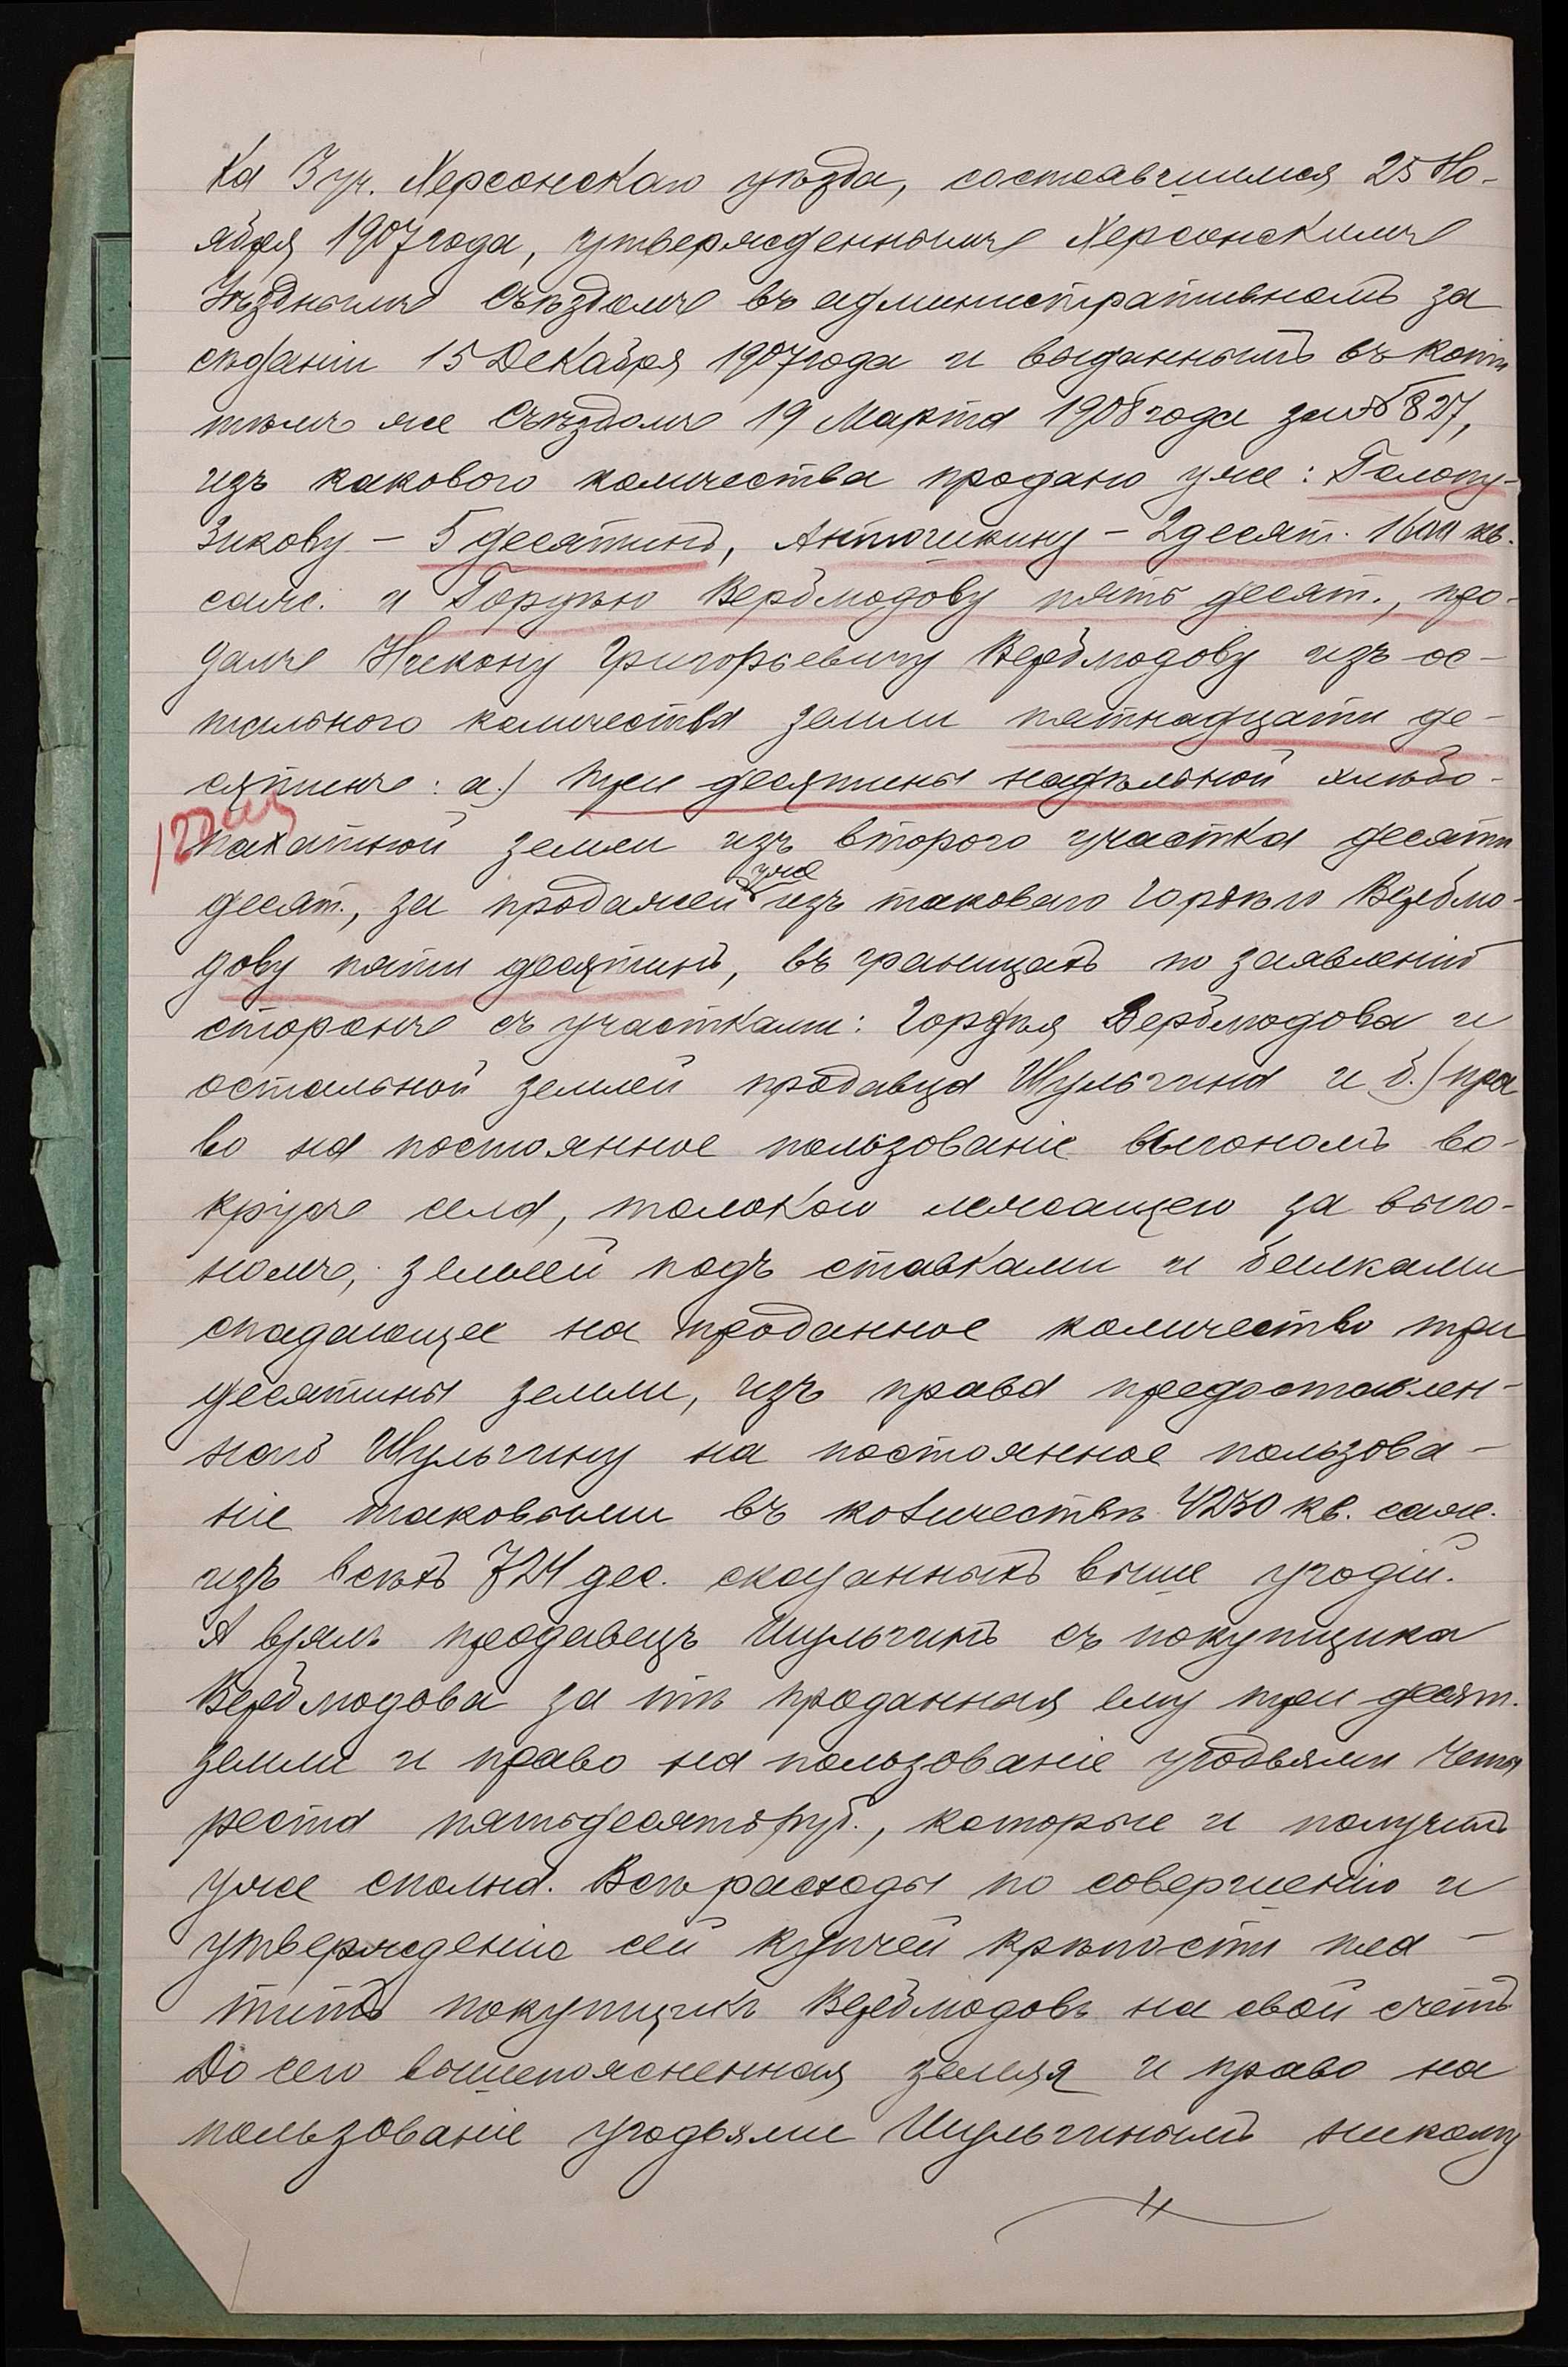 ка 3 уч. Херсонскаго уѣзда, состоявшимся 25 Но-
ября 1907 года, утвержденнымъ Херсонскимъ
Уѣзднымъ Съѣздомъ въ административномъ за
сѣданіи 15 Декабря 1907 года и выданнымъ въ копіи
тѣмъ же Съѣздомъ 19 Марта 1908 года за № 827,
изъ какового количества продано уже: Голопу-
зикову – 5 десятинъ, Антючикину – 2 десят. 1600 кв.
саж. и Гордѣю Вермодову пять десят., про-
далъ Никону Григорьевичу Вермодову изъ ос-
тального количества земли пятнадцати де-
сятинъ: а.) три десятины надѣльной хлѣбо-
пахатной земли изъ второго участка десяти
десят., за продажей уже изъ таковаго Гордѣю Вермо-
дову пяти десятинъ, въ границахъ по заявленію
сторонъ съ участками: Гордѣя Вермодова и
остальной землей продавца Шульгина и б.) пра
во на постоянное пользованіе выгономъ во-
кругъ села, толокою лежащею за выго-
номъ, землей подъ ставками и балками
спадающее на проданное количество три
десятины земли, изъ права предоставлен-
наго Шульгину на постоянное пользова-
ніе таковыми въ количествѣ 4230 кв. саж.
изъ всѣхъ 724 дес. сказанныхъ выше угодій.
А взялъ продавецъ Шульгинъ съ покупщика
Вермодова за тѣ проданныя ему три десят.
земли и право на пользованіе угодьями четы
реста пятьдесятъ руб., которые и получилъ
уже сполна. Всѣ расходы по совершенію и
утвержденію сей купчей крѣпости пла-
титъ покупщикъ Вермодовъ на свой счетъ
До сего вышепоясненная земля и право на
пользованіе угодьями Шульгинымъ никому